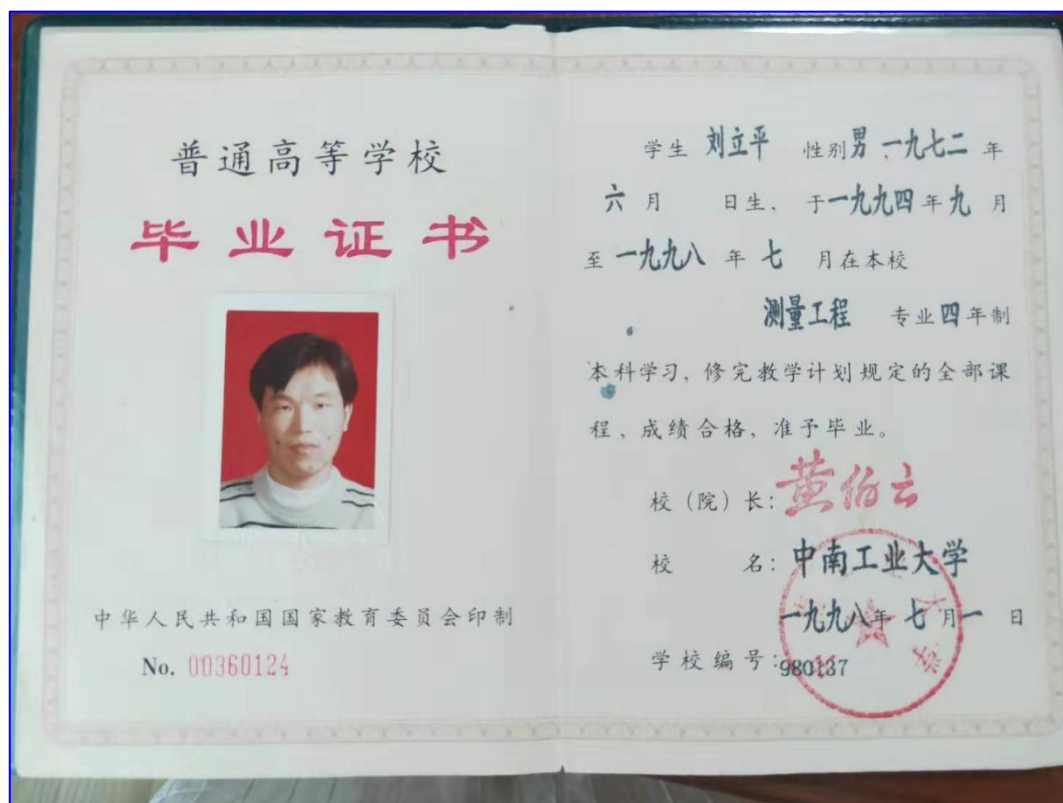 普通高等学校
毕业证书
中华人民共和国国家教育委员会印制
No. 00360124
学生 刘立平 性别男、一九七二年
六月 日生，于一九九四年九月
至一九九八年七月在本校
测量工程 专业四年制
本科学习，修完教学计划规定的全部课
程，成绩合格，准予毕业。
校（院）长：黄伯云
校 名：中南工业大学
一九九八年七月一日
学校编号：980137